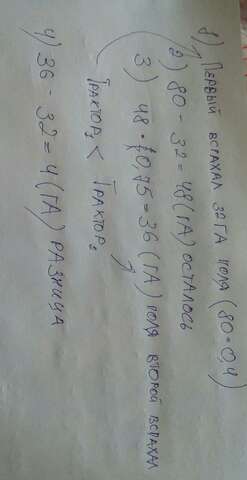 1) ПЕРВЫЙ ВСПАХАЛ 32 ГА ПОЛЯ (80·0,4)
2) 80 - 32 = 48 (ГА) ОСТАЛОСЬ
3) 48 · 0,75 = 36 (ГА) ПОЛЯ ВТОРОЙ ВСПАХАЛ
ТРАКТОР₁ < ТРАКТОР₂
4) 36 - 32 = 4 (ГА) РАЗНИЦА